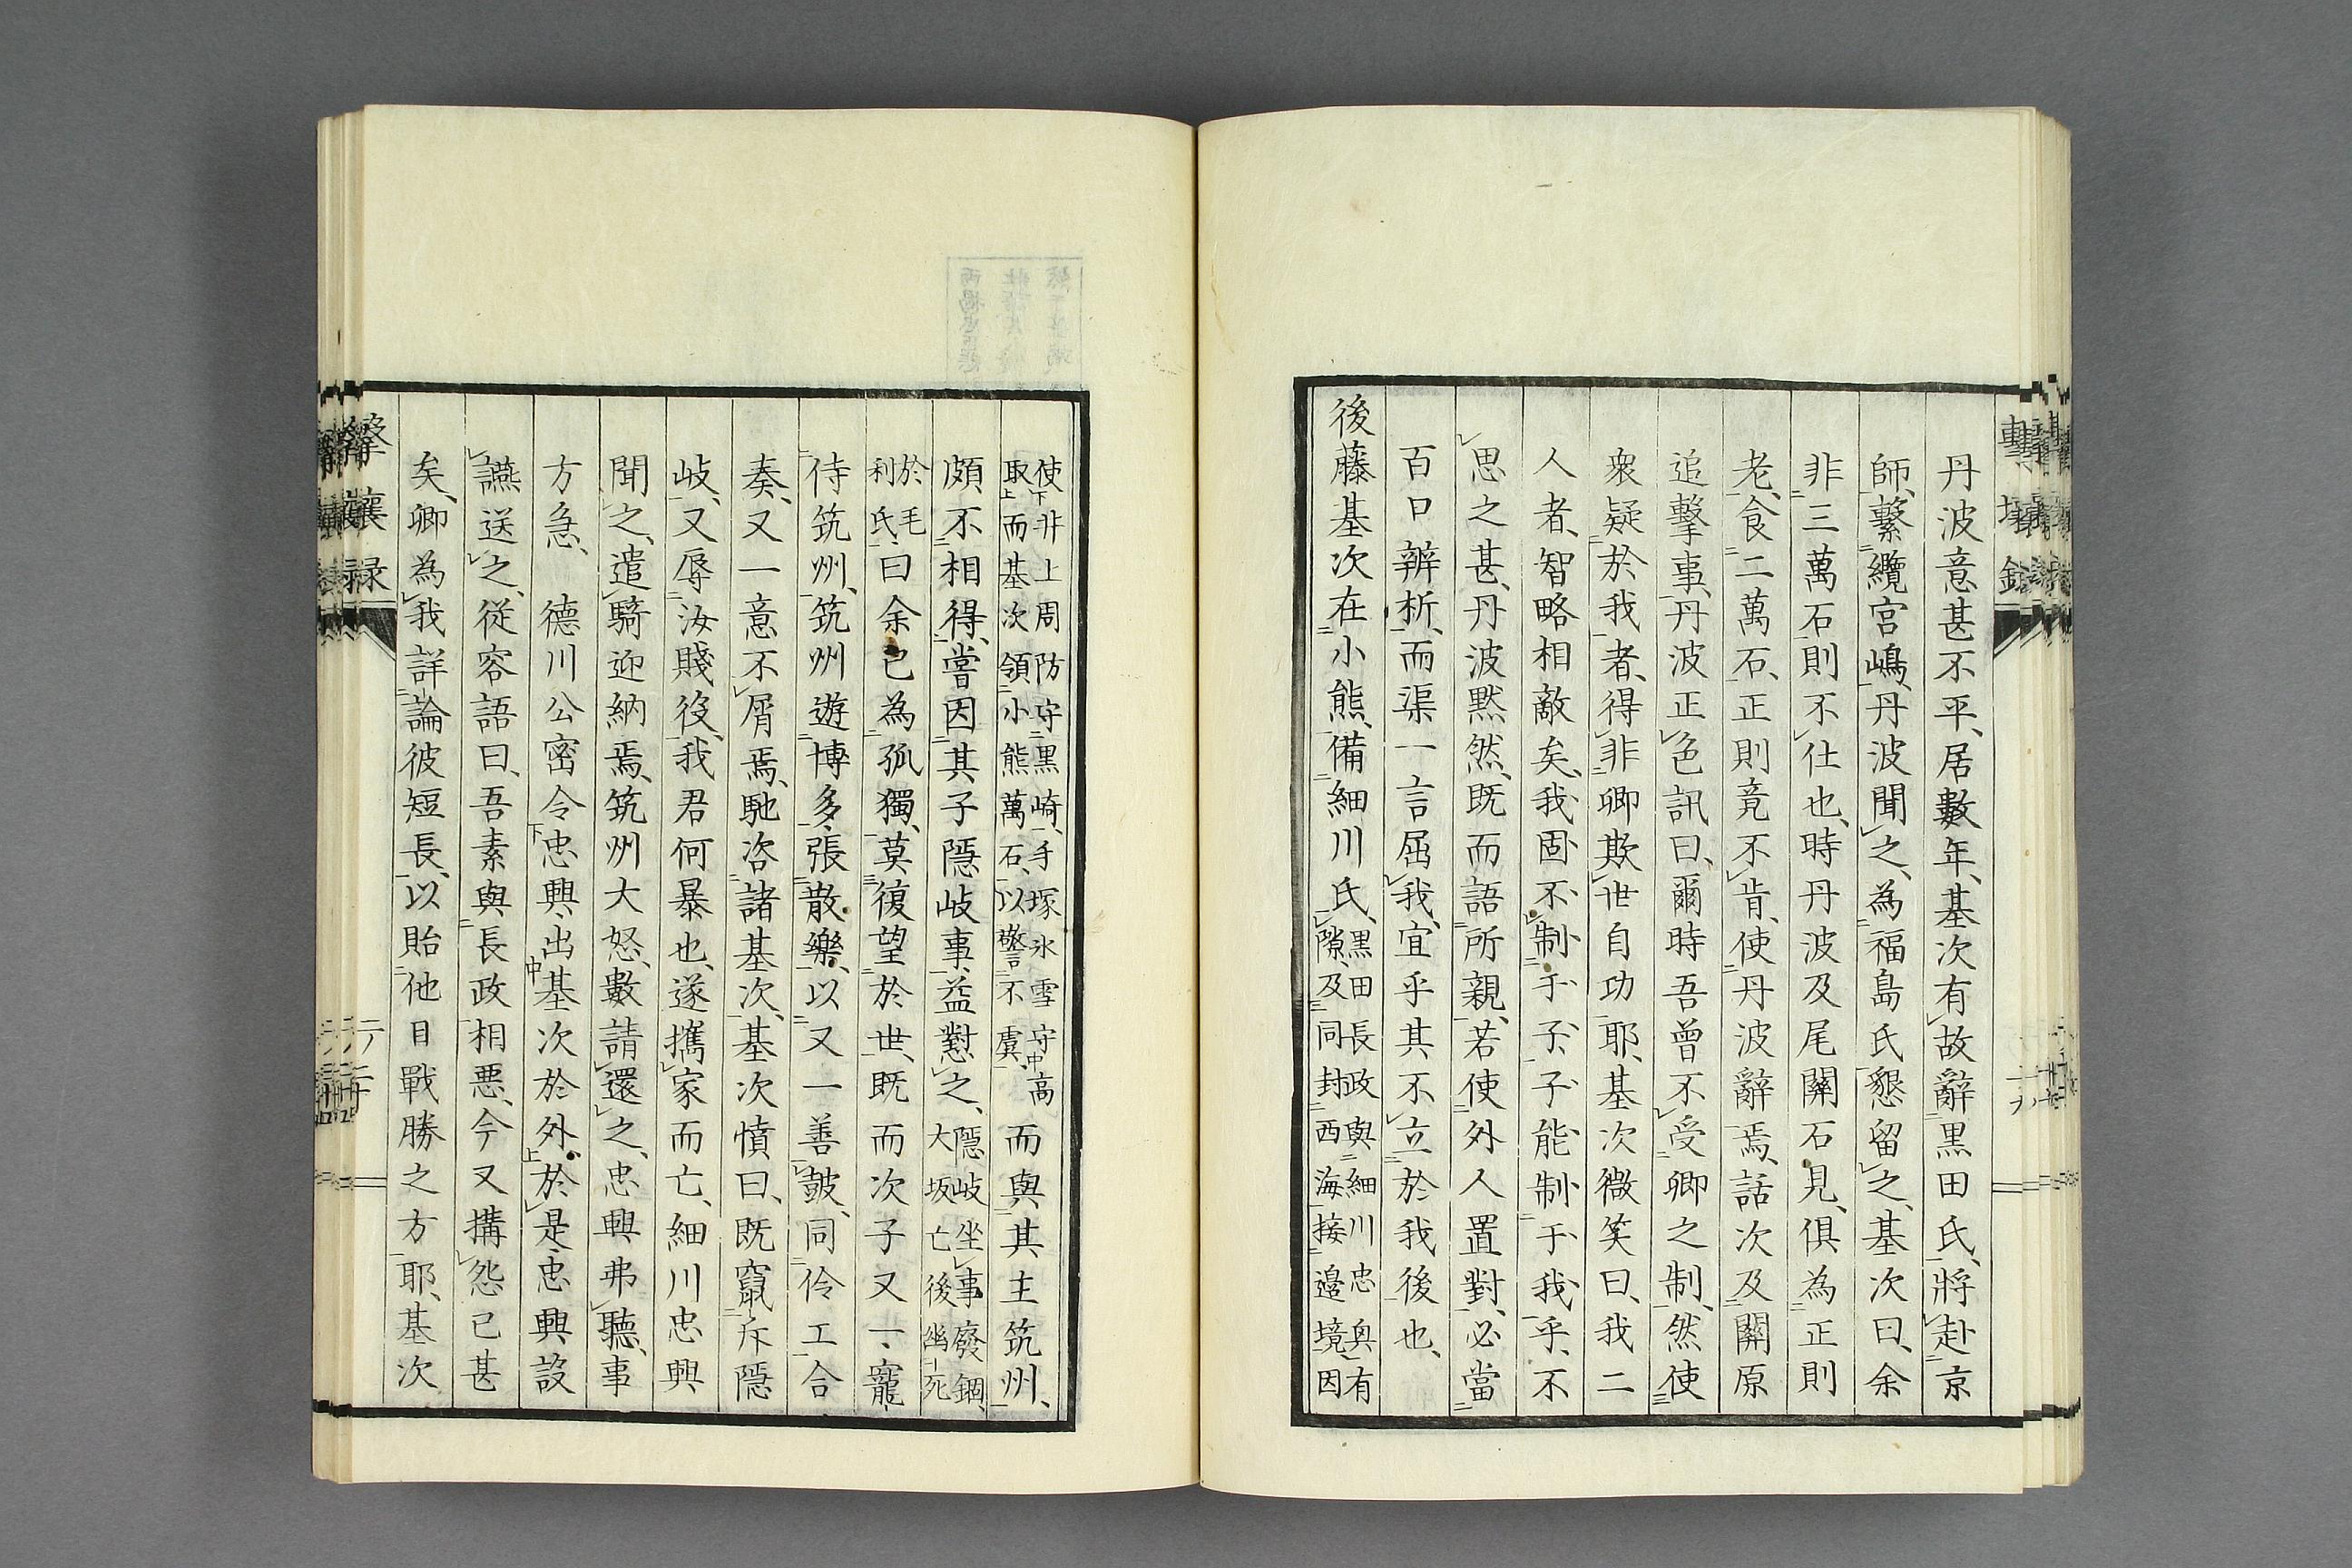 丹波意甚不平、居數年、基次有故辭黒田氏、將赴京
師、繋纜宮嶋、丹波聞之、為福島氏懇留之、基次曰、余
非三萬石則不仕也、時丹波及尾關石見、俱為正則
老、食二萬石、正則竟不肯、使丹波辭焉、話次及關原
追擊事、丹波正色訊曰、爾時吾曾不受卿之制、然使
衆疑於我者、得非卿欺世自功耶、基次微笑曰、我二
人者、智略相敵矣、我固不制于子、子能制于我乎、不
思之甚、丹波黙然、既而語所親、若使外人置對、必當
百口辨析、而渠一言屈我、宜乎其不立於我後也、
後藤基次在小熊、備細川氏、黒田長政與細川忠興有
隙、及同封西海、接邉境、因
使非上周防守黒崎、手塚氷雪守中高
取、而基次領小熊萬石、以警不虞、而與其主筑州、
頗不相得、嘗因其子隱岐事、益懟之、隱岐坐事廢錮、
大坂亡後幽死
於毛
利氏、曰余已為孤獨、莫復望於世、既而次子又一、寵
侍筑州、筑州遊博多、張散樂、以又一善皷、同伶工合
奏、又一意不屑焉、馳咨諸基次、基次憤曰、既竄斥隱
岐、又辱汝賤役、我君何暴也、遂攜家而亡、細川忠興
聞之、遣騎迎納焉、筑州大怒、數請還之、忠興弗聽、事
方急、德川公密令忠興、出基次於外、於是忠興設
讌送之、從容語曰、吾素與長政相悪、今又搆怨已甚
矣、卿為我詳論彼短長、以貽他日戰勝之方耶、基次